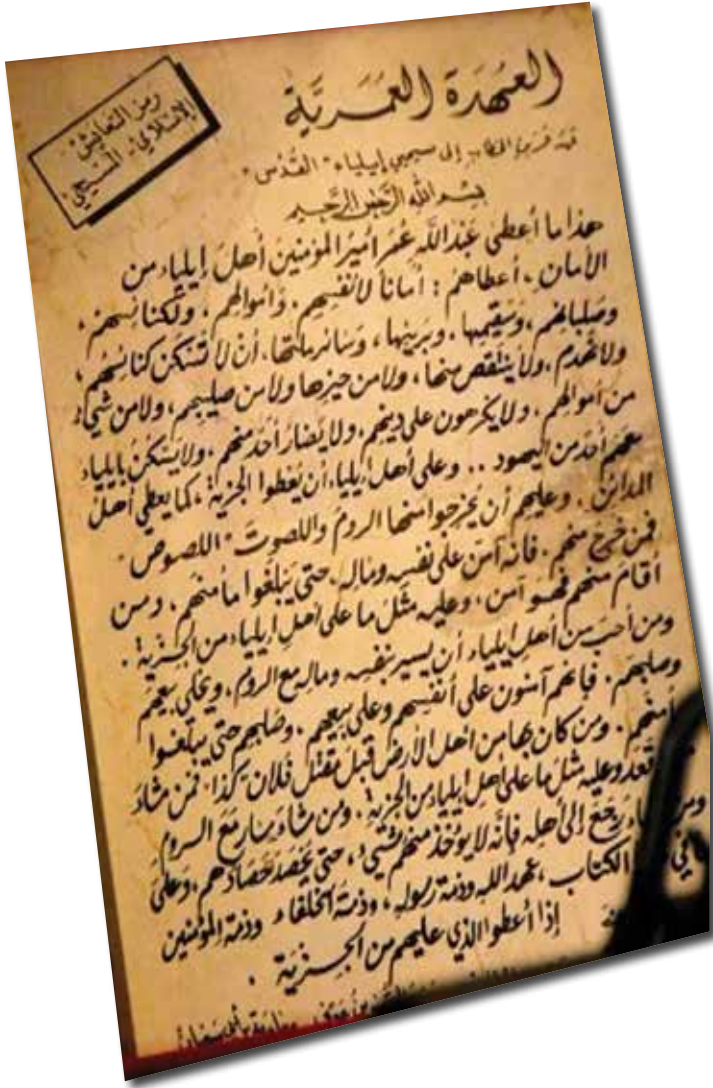 العُهدَة العُمَريَّة
رمز التعايش
الإسلامي - المسيحي
إلى مسيحيي إيلياء "القُدس"
بسم الله الرَّحمٰن الرَّحيم
هذا ما أعطى عَبْدُ اللَّهِ عُمَر أميرُ المؤمنين أهلَ إيلياء من
الأمان ، أعطاهم : أماناً لأنفسهم ، وأموالهم ، ولكنائسهم ،
وصلبانهم ، وسقيمها ، وبريئها ، وسائر ملّتها ، أن لا تُسْكن كنائسهم ،
ولا تُهدَم ، ولا يُنتقص منها ، ولا من حيزها ولا من صليبهم ، ولا من شيء
من أموالهم ، ولا يكرهون على دينهم ، ولا يُضارّ أحَد منهم ، ولا يَسْكن بإيلياء
معهم أحَد من اليهود .. وعلى أهل إيلياء أن يُعطوا الجزية ، كما يعطي أهل
المدائن . وعليهم أن يُخرجوا منها الروم واللصوتَ "اللصوص"
فمن خرج منهم . فإنه آمن على نفسه وماله ، حتى يَبلغوا مأمنهم ، ومن
أقامَ منهم فهو آمن ، وعليه مثل ما على أهل إيلياء من الجزية .
ومن أحبّ من أهل إيلياء أن يسير بنفسه وماله مع الروم ، ويخلي بِيَعهم
وصلبهم . فإنهم آمنون على أنفسهم وعلى بيعهم ، وصُلبهم حتى يبلغوا
مأمنهم . ومن كان بها من أهل الأرض قبل مقتل فلان "كذا" فمن شاء
قعد وعليه مثل ما على أهل إيلياء من الجزية . ومن شاء سارَ مَعَ الروم
رجَعَ إلى أهله فإنَّه لا يؤخذ منهم شيء ، حتى يحصد حصادهم ، وعلى
في الكتاب ، عهد الله وذمة رسوله ، وذمة الخلفاء وذمة المؤمنين
إذا أعطوا الذي عليهم من الجزية .